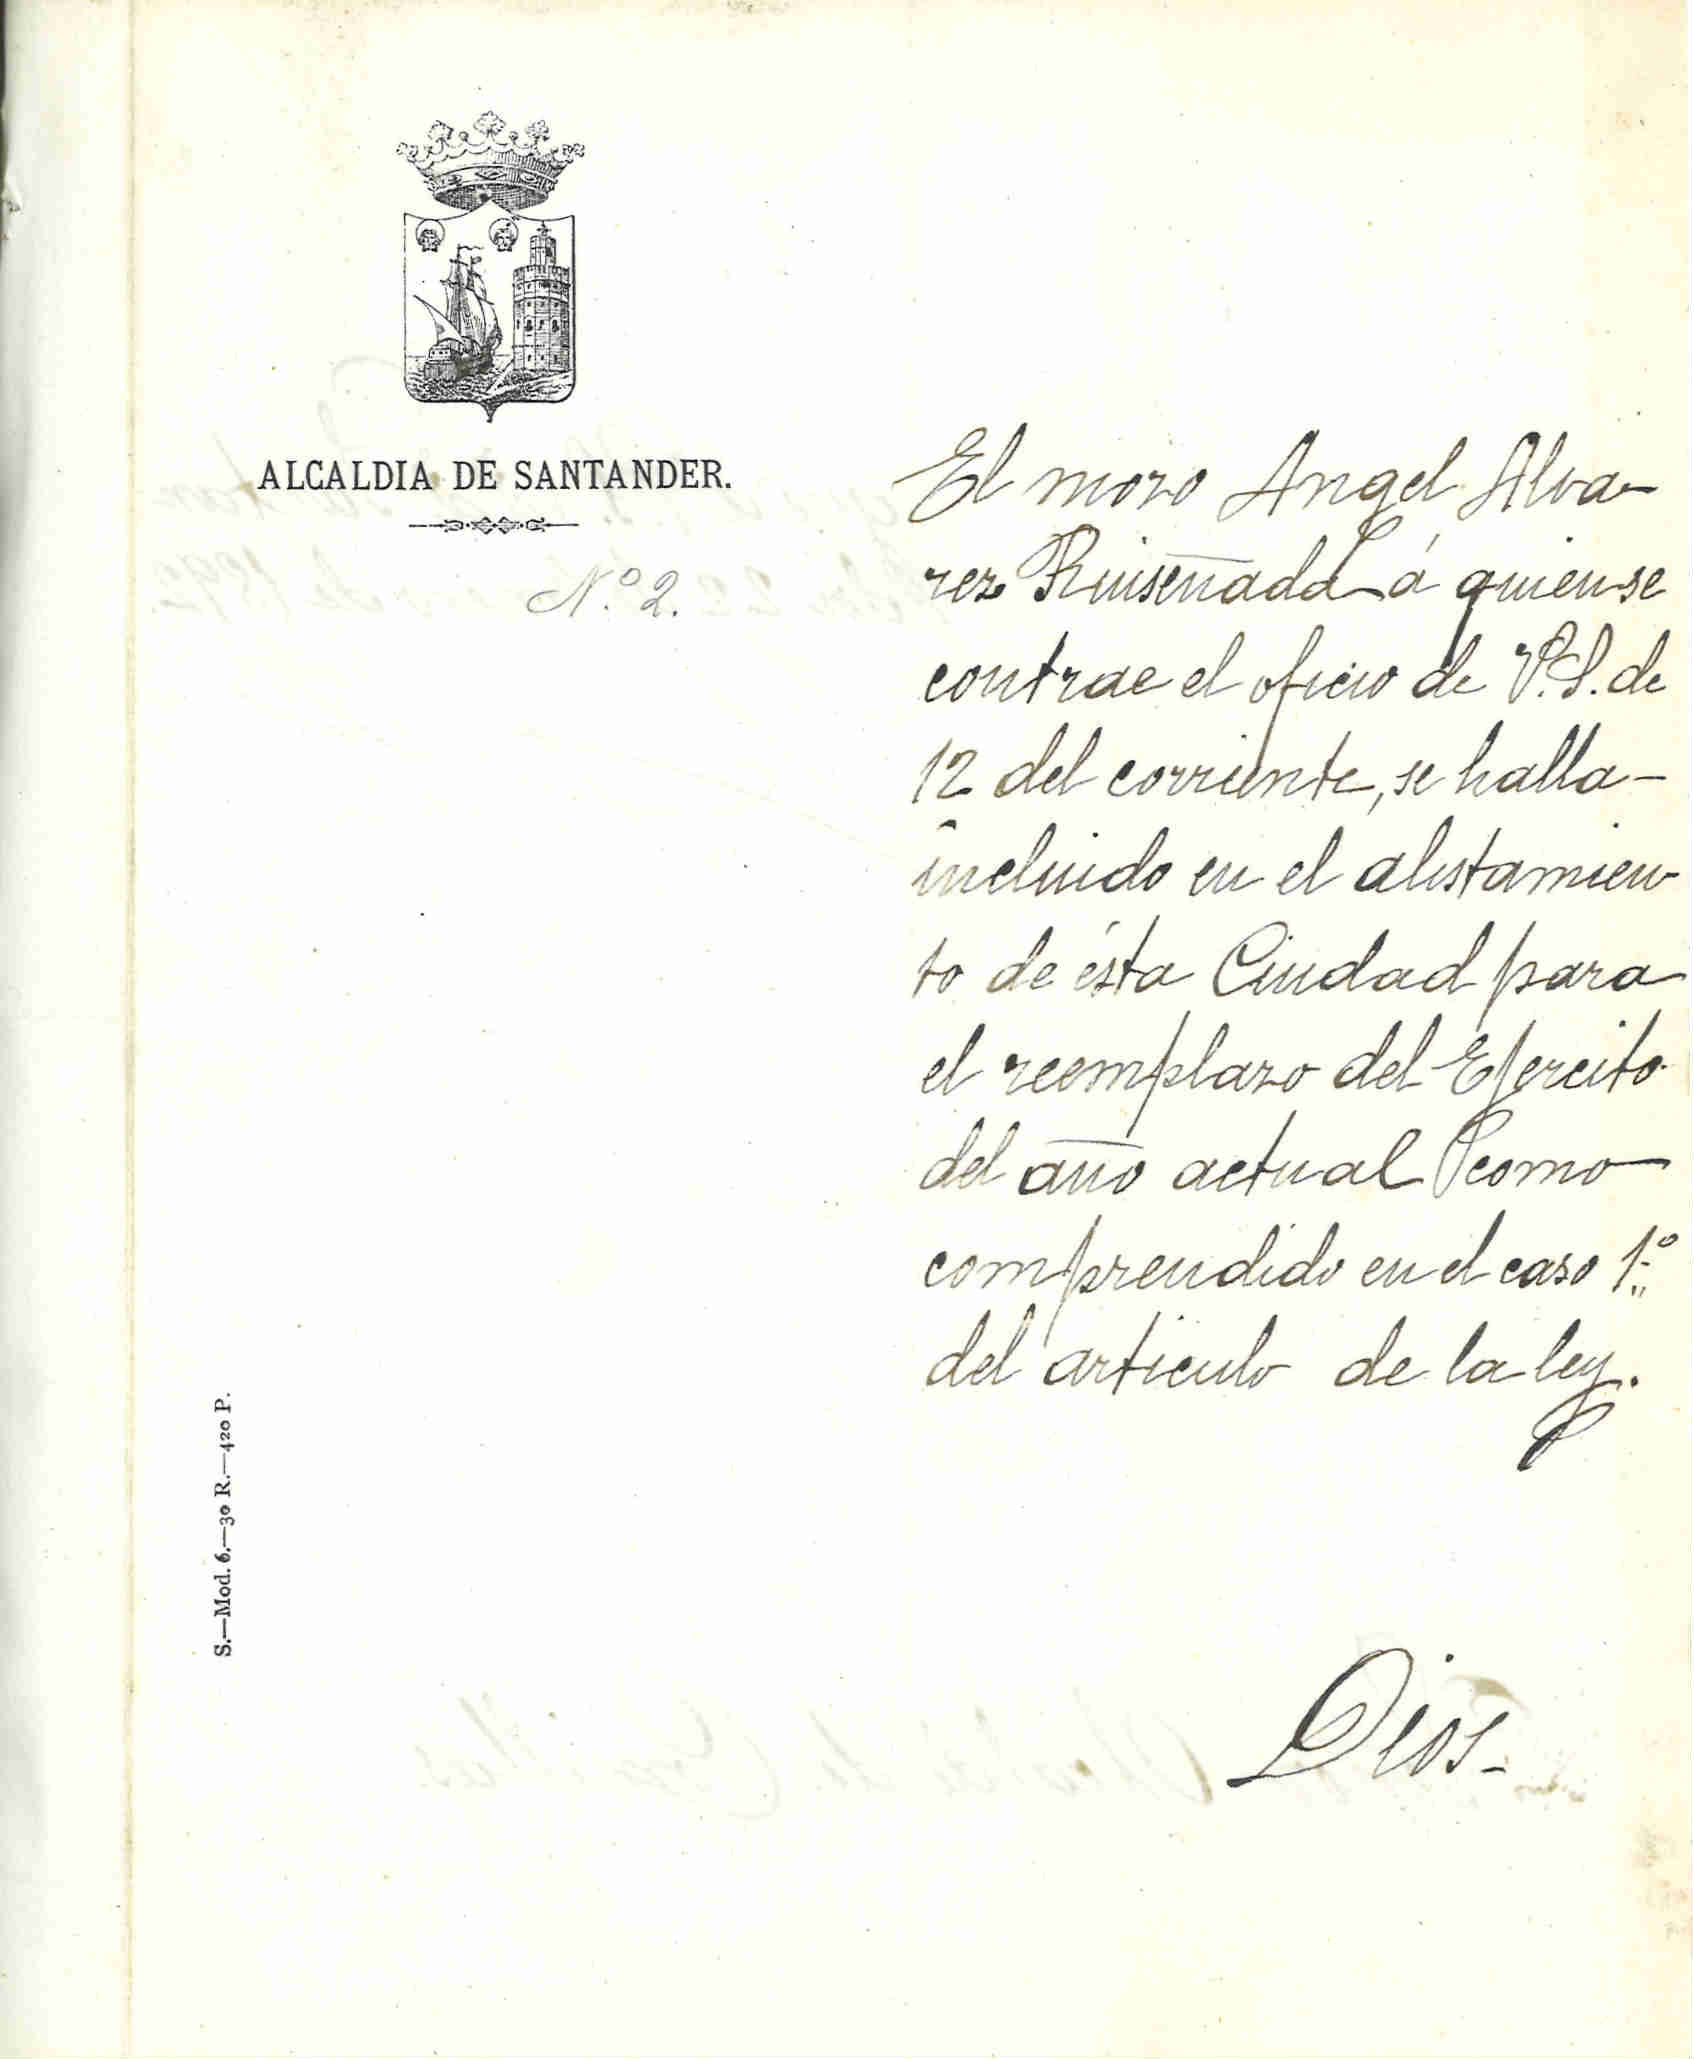 ALCALDIA DE SANTANDER.
N.º 2.
El mozo Angel Alva-
rez Ruiseñada á quien se
contrae el oficio de V.S. de
12 del corriente, se halla-
incluido en el alistamien-
to de ésta Ciudad para
el reemplazo del Ejercito
del año actual como
comprendido en el caso 1.º
del articulo de la ley.
Dios-
S.—Mod. 6.—30 R.—420 P.